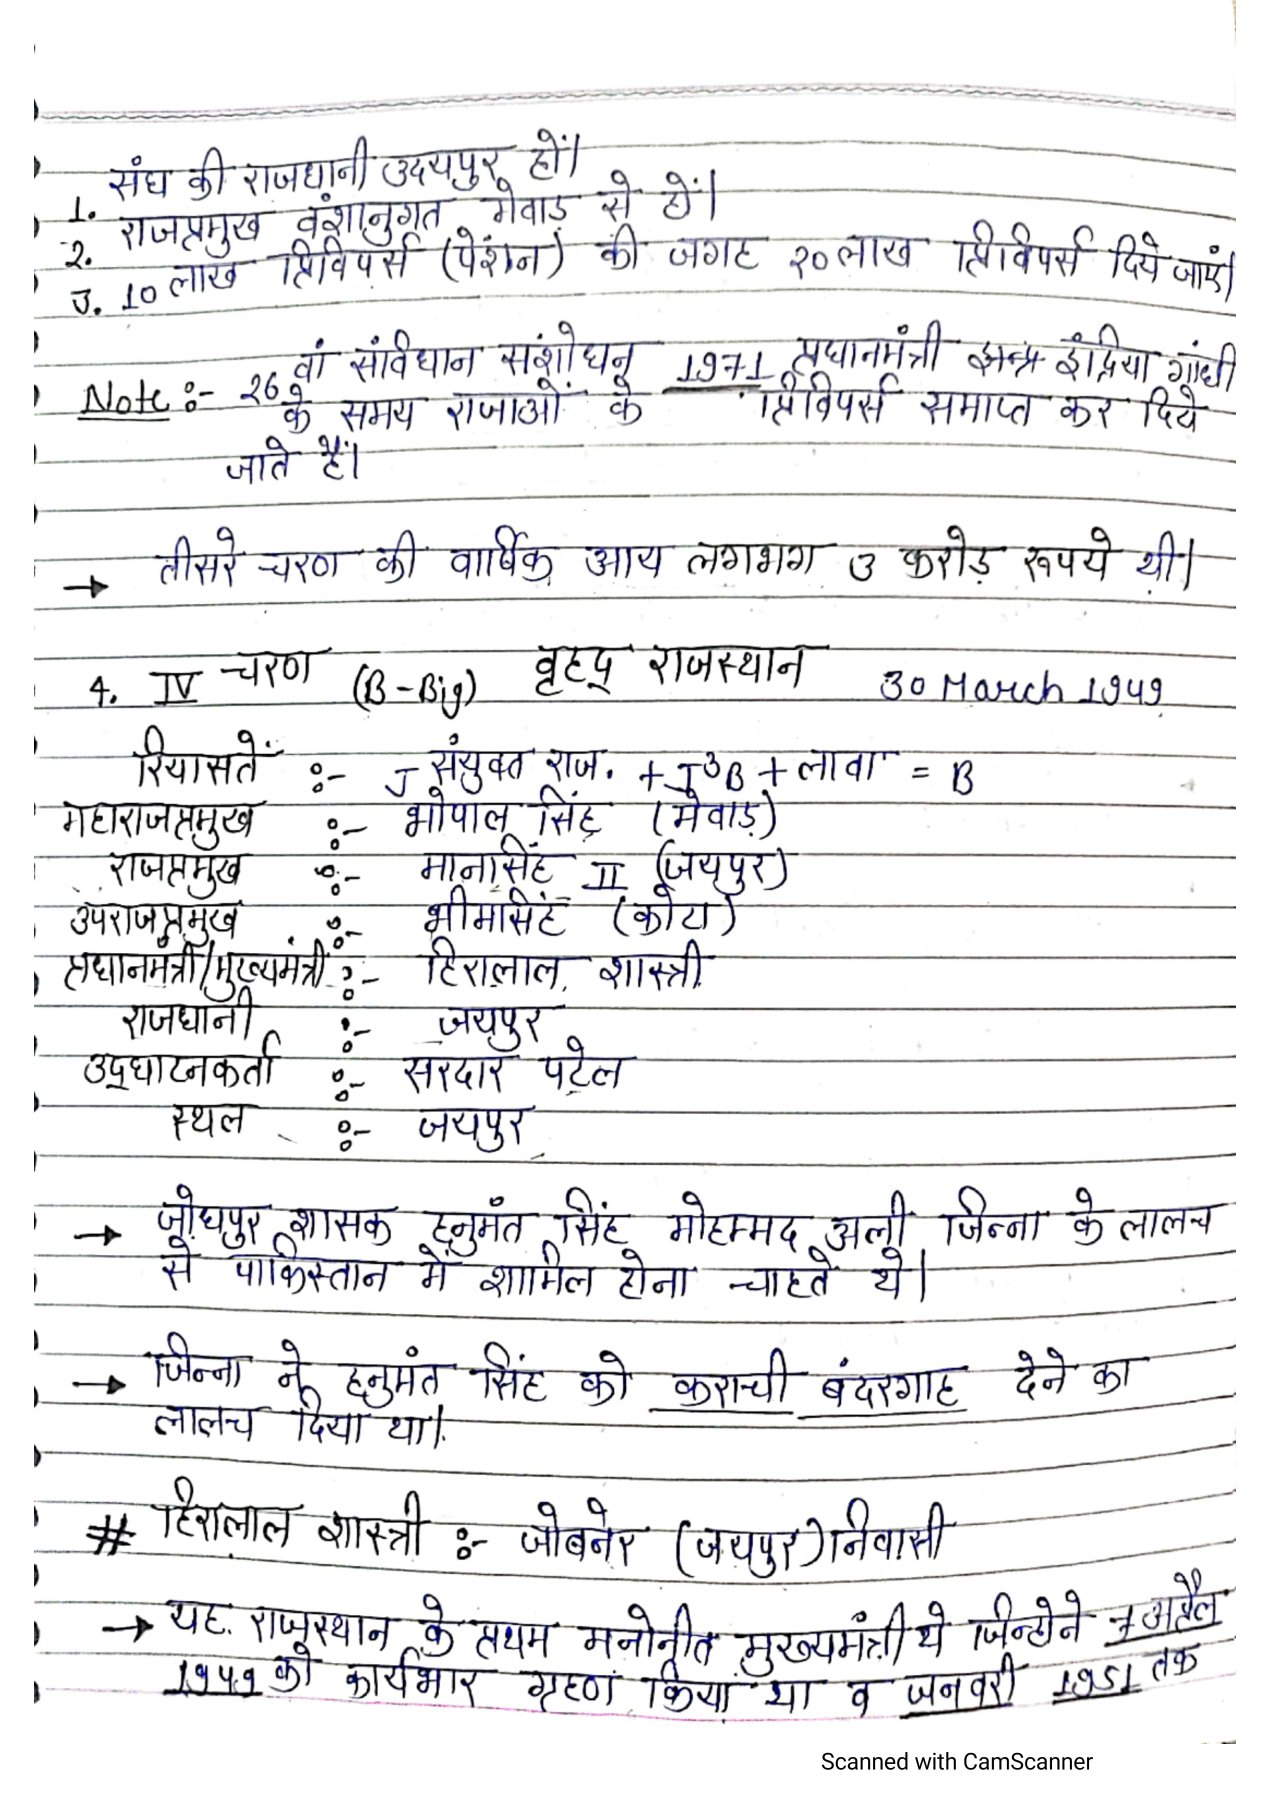 1. संघ की राजधानी उदयपुर हों।
2. राजप्रमुख वंशानुगत मेवाड़ से हों।
3. 10 लाख प्रिविपर्स (पेंशन) की जगह 20 लाख प्रिविपर्स दिये जाएं।
Note :- 26 वां संविधान संशोधन 1971 प्रधानमंत्री इंद्रिया गांधी
के समय राजाओं के प्रिविपर्स समाप्त कर दिये
जाते है।
→ तीसरे चरण की वार्षिक आय लगभग 3 करोड़ रूपये थी।
4. IV चरण (B-Big) वृहद् राजस्थान 30 March 1949
रियासतें :- संयुक्त राज. + J³B + लावा = B
महाराजप्रमुख :- भोपाल सिंह (मेवाड़)
राजप्रमुख :- मानसिंह II (जयपुर)
उपराजप्रमुख :- भीमसिंह (कोटा)
प्रधानमंत्री/मुख्यमंत्री :- हिरालाल शास्त्री
राजधानी :- जयपुर
उद्घाटनकर्ता :- सरदार पटेल
स्थल :- जयपुर
→ जोधपुर शासक हनुमंत सिंह मोहम्मद अली जिन्ना के लालच
से पाकिस्तान में शामिल होना चाहते थे।
→ जिन्ना ने हनुमंत सिंह को कराची बंदरगाह देने का
लालच दिया था।
# हिरालाल शास्त्री :- जोबनेर (जयपुर) निवासी
→ यह राजस्थान के प्रथम मनोनीत मुख्यमंत्री थे जिन्होने 7 अप्रैल
1949 को कार्यभार ग्रहण किया था व जनवरी 1951 तक
Scanned with CamScanner